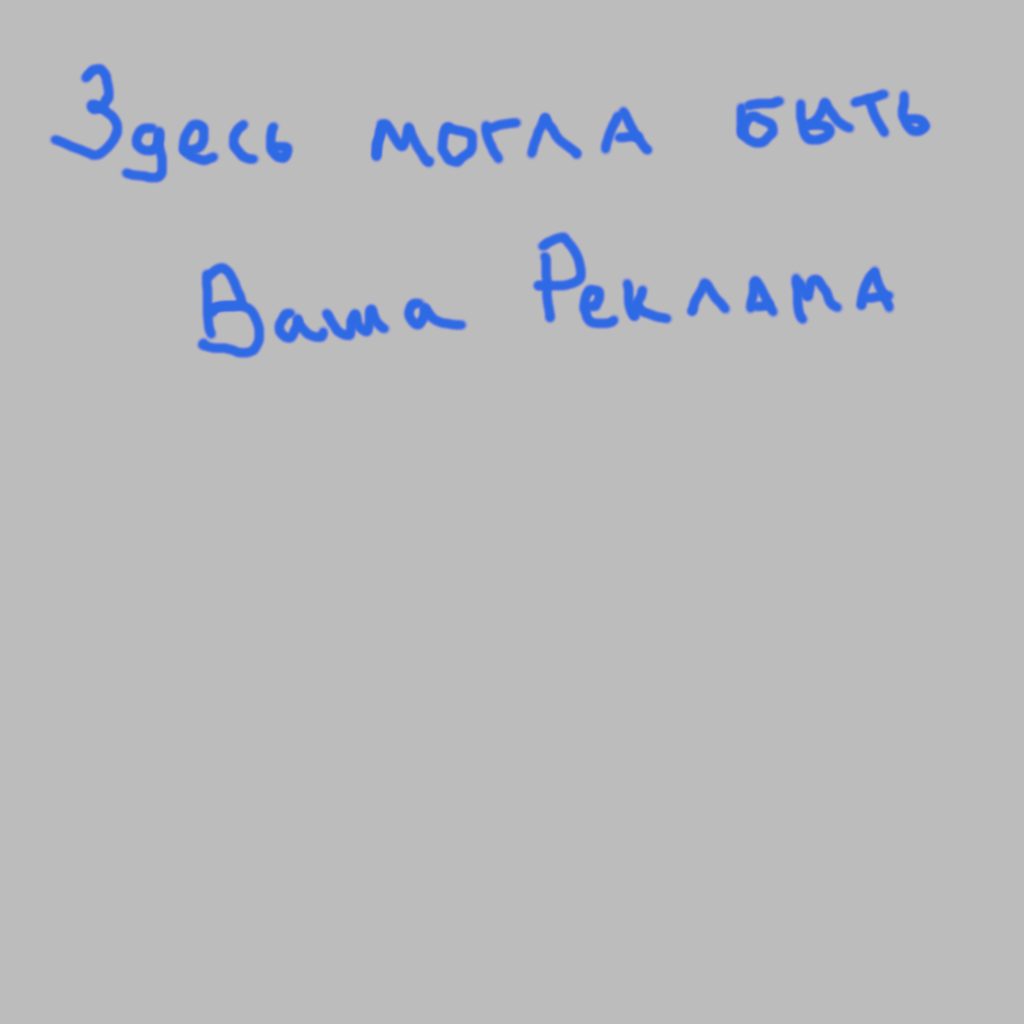 Здесь могла быть
Ваша Реклама